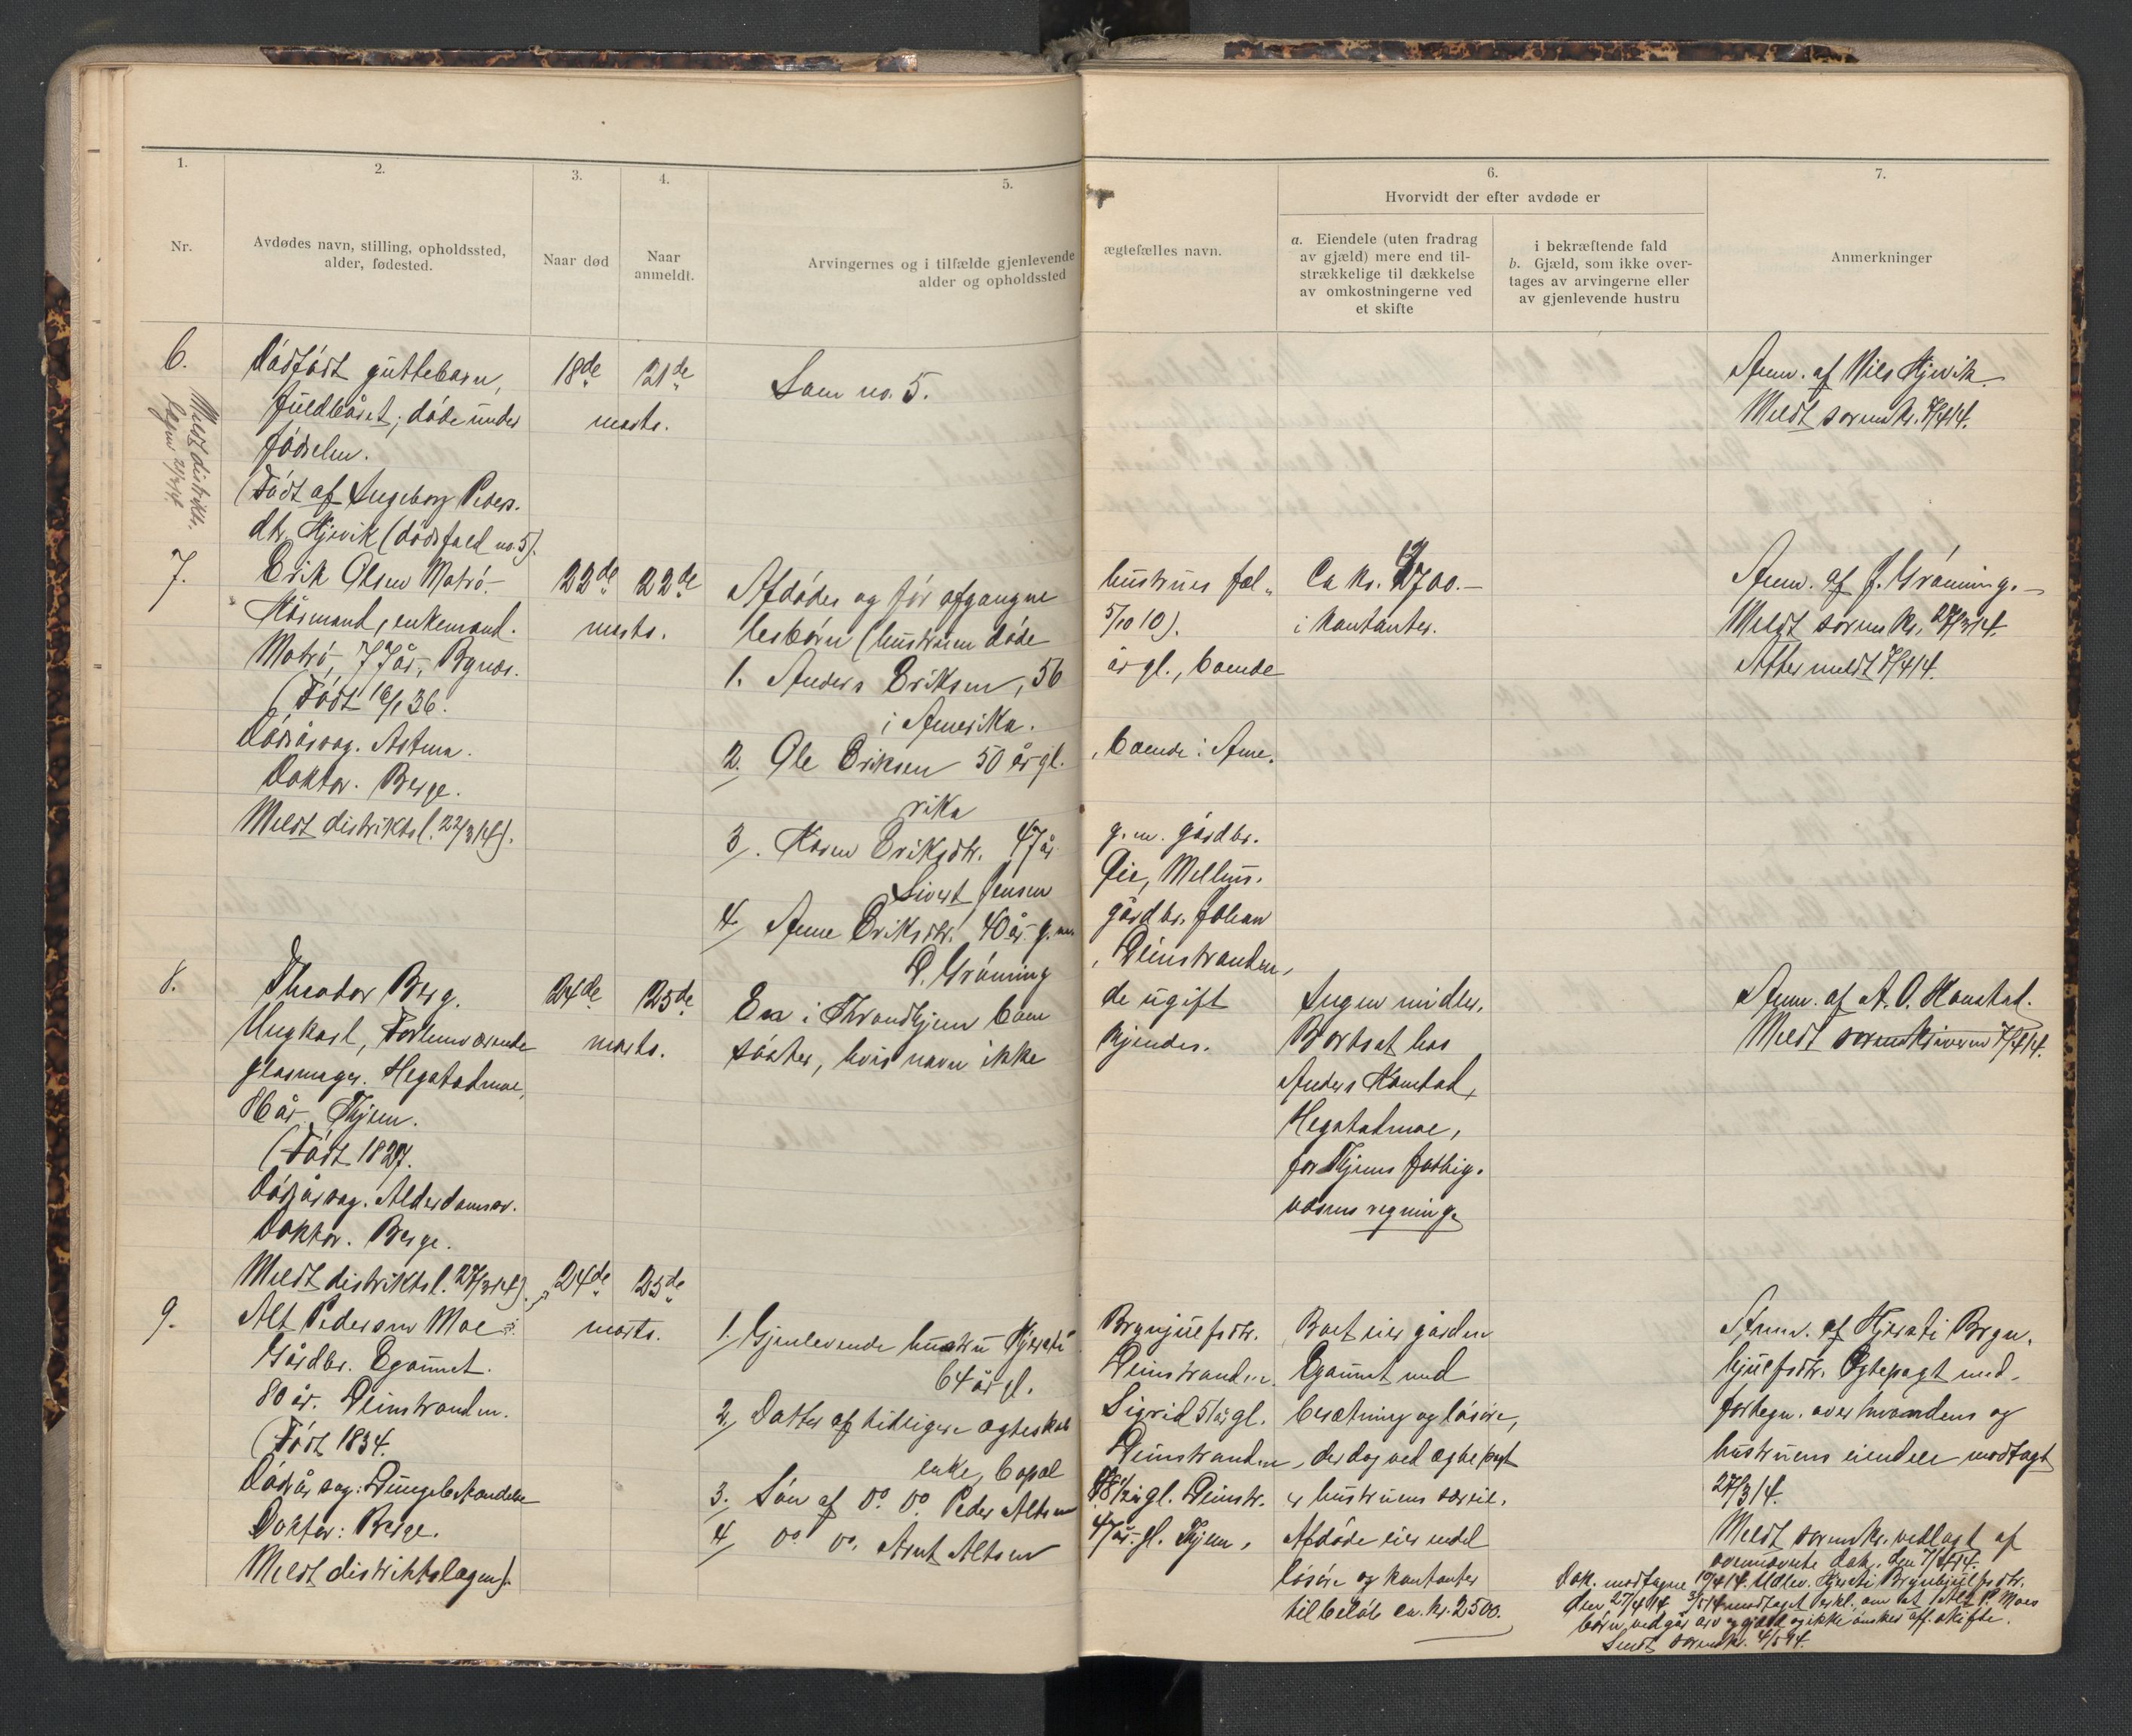 1.
2.
3.
4.
5.
6.
7.
Nr.
Avdødes navn, stilling, opholdssted,
alder, fødested.
Naar død
Naar
anmeldt.
Arvingernes og i tilfælde gjenlevende
alder og opholdssted
ægtefælles navn.
Hvorvidt der efter avdøde er
a. Eiendele (uten fradrag
av gjæld) mere end til-
strækkelige til dækkelse
av omkostningerne ved
et skifte
i bekræftende fald
b. Gjæld, som ikke over-
tages av arvingerne eller
av gjenlevende hustru
Anmerkninger
6.
Meldt distrikts.
lægen 21/3 14
Dødfødt guttebarn,
fuldbåret; døde under
fødselen.
(Født af Ingeborg Peders.
dtr. Hjevik (dødsfald no. 5).
18de 21de
marts.
Som no. 5.
Anm. af Nils Hjevik.
Meldt sorenskr. 7/4 14.
7.
Erik Olsen Motrø
Kårmand, enkemand.
Motrø, 77 år, Bynes.
(Født 16/1 36.
Dødsårsag. Astma.
Doktor. Berge.
Meldt distriktsl. 22/3 14).
22de 22de
marts.
Afdødes og før afgangne hustrues fæl„
lesbørn (hustruen døde 5/10 10).
1. Anders Eriksen, 56 år gl., boende
i Amerika.
2. Ole Eriksen 50 år gl., boende i Ame.
rika
3. Karen Eriksdtr. 47 år g. m. gårdbr.
Sivert Jensen Øie, Melhus.
4. Anne Eriksdtr. 40 år g. m. gårdbr. Johan
P. Grønning, Leinstranden,
Ca kr. 700.-
i kontanter.
Anm. af J. Grønning.
Meldt sorenskr. 27/3 14.
Atter meldt 7/4 14.
8.
Theodor Berg.
Ungkarl, Forhenværende
glasmager. Hegstadmoe,
86 år. Thjem.
(Født 1827.
Dødsårsag. Alderdomssv.
Doktor. Berge.
Meldt distriktsl. 27/3 14).
24de 25de
marts.
En i Throndhjem boende ugift
søster, hvis navn ikke kjendes.
Ingen midler.
Bortsat hos
Anders Hamstad,
Hegstadmoe,
for Thjems fattig.
væsens regning.
Anm. af A. O. Hamstad.
Meldt sorenskriveren 7/4 14.
9.
Alt Pedersen Moe
Gårdbr. Egommet.
80 år. Leinstranden.
(Født 1834.
Dødsårsag: Lungebetændelse
Doktor: Berge.
Meldt distriktslægen).
24de 25de
marts.
1. Gjenlevende hustru Kjersti Brynjulfsdtr.
64 år gl. Leinstranden
2. Datter af tidligere ægteskab Sigrid 51 år gl.
enke, bopæl Leinstranden
3. Søn af Do. Do. Peder Altsen 48 1/2 år gl. Leinstr.
4. Do. Do. Arnt Altsen 47 år gl. Thjem.
Boet eier gården
Egommet med
besætning og løsøre,
der dog ved ægtepagt
er hustruens særeie.
Afdøde eier endel
løsøre og kontanter
til beløb ca. kr. 2500.
Anm. af Kjersti Bryn.
hjulfsdtr. Ægtepagt med
fortegn. over mandens og
hustruens eiendele modtagt
27/3 14.
Meldt sorenskr. vedlagt af
ovennævnte dok. den 7/4 14.
Dok. modtagne 10/4 14. Udlev. Kjersti Brynhjulfsdtr.
den 27/4 14. 3/5 14 modtaget erkl. om at Alt P. Moes
børn vedgår arv og gjæld og ikke ønsker off. skifte.
Sendt sorenskr. 4/5 14.